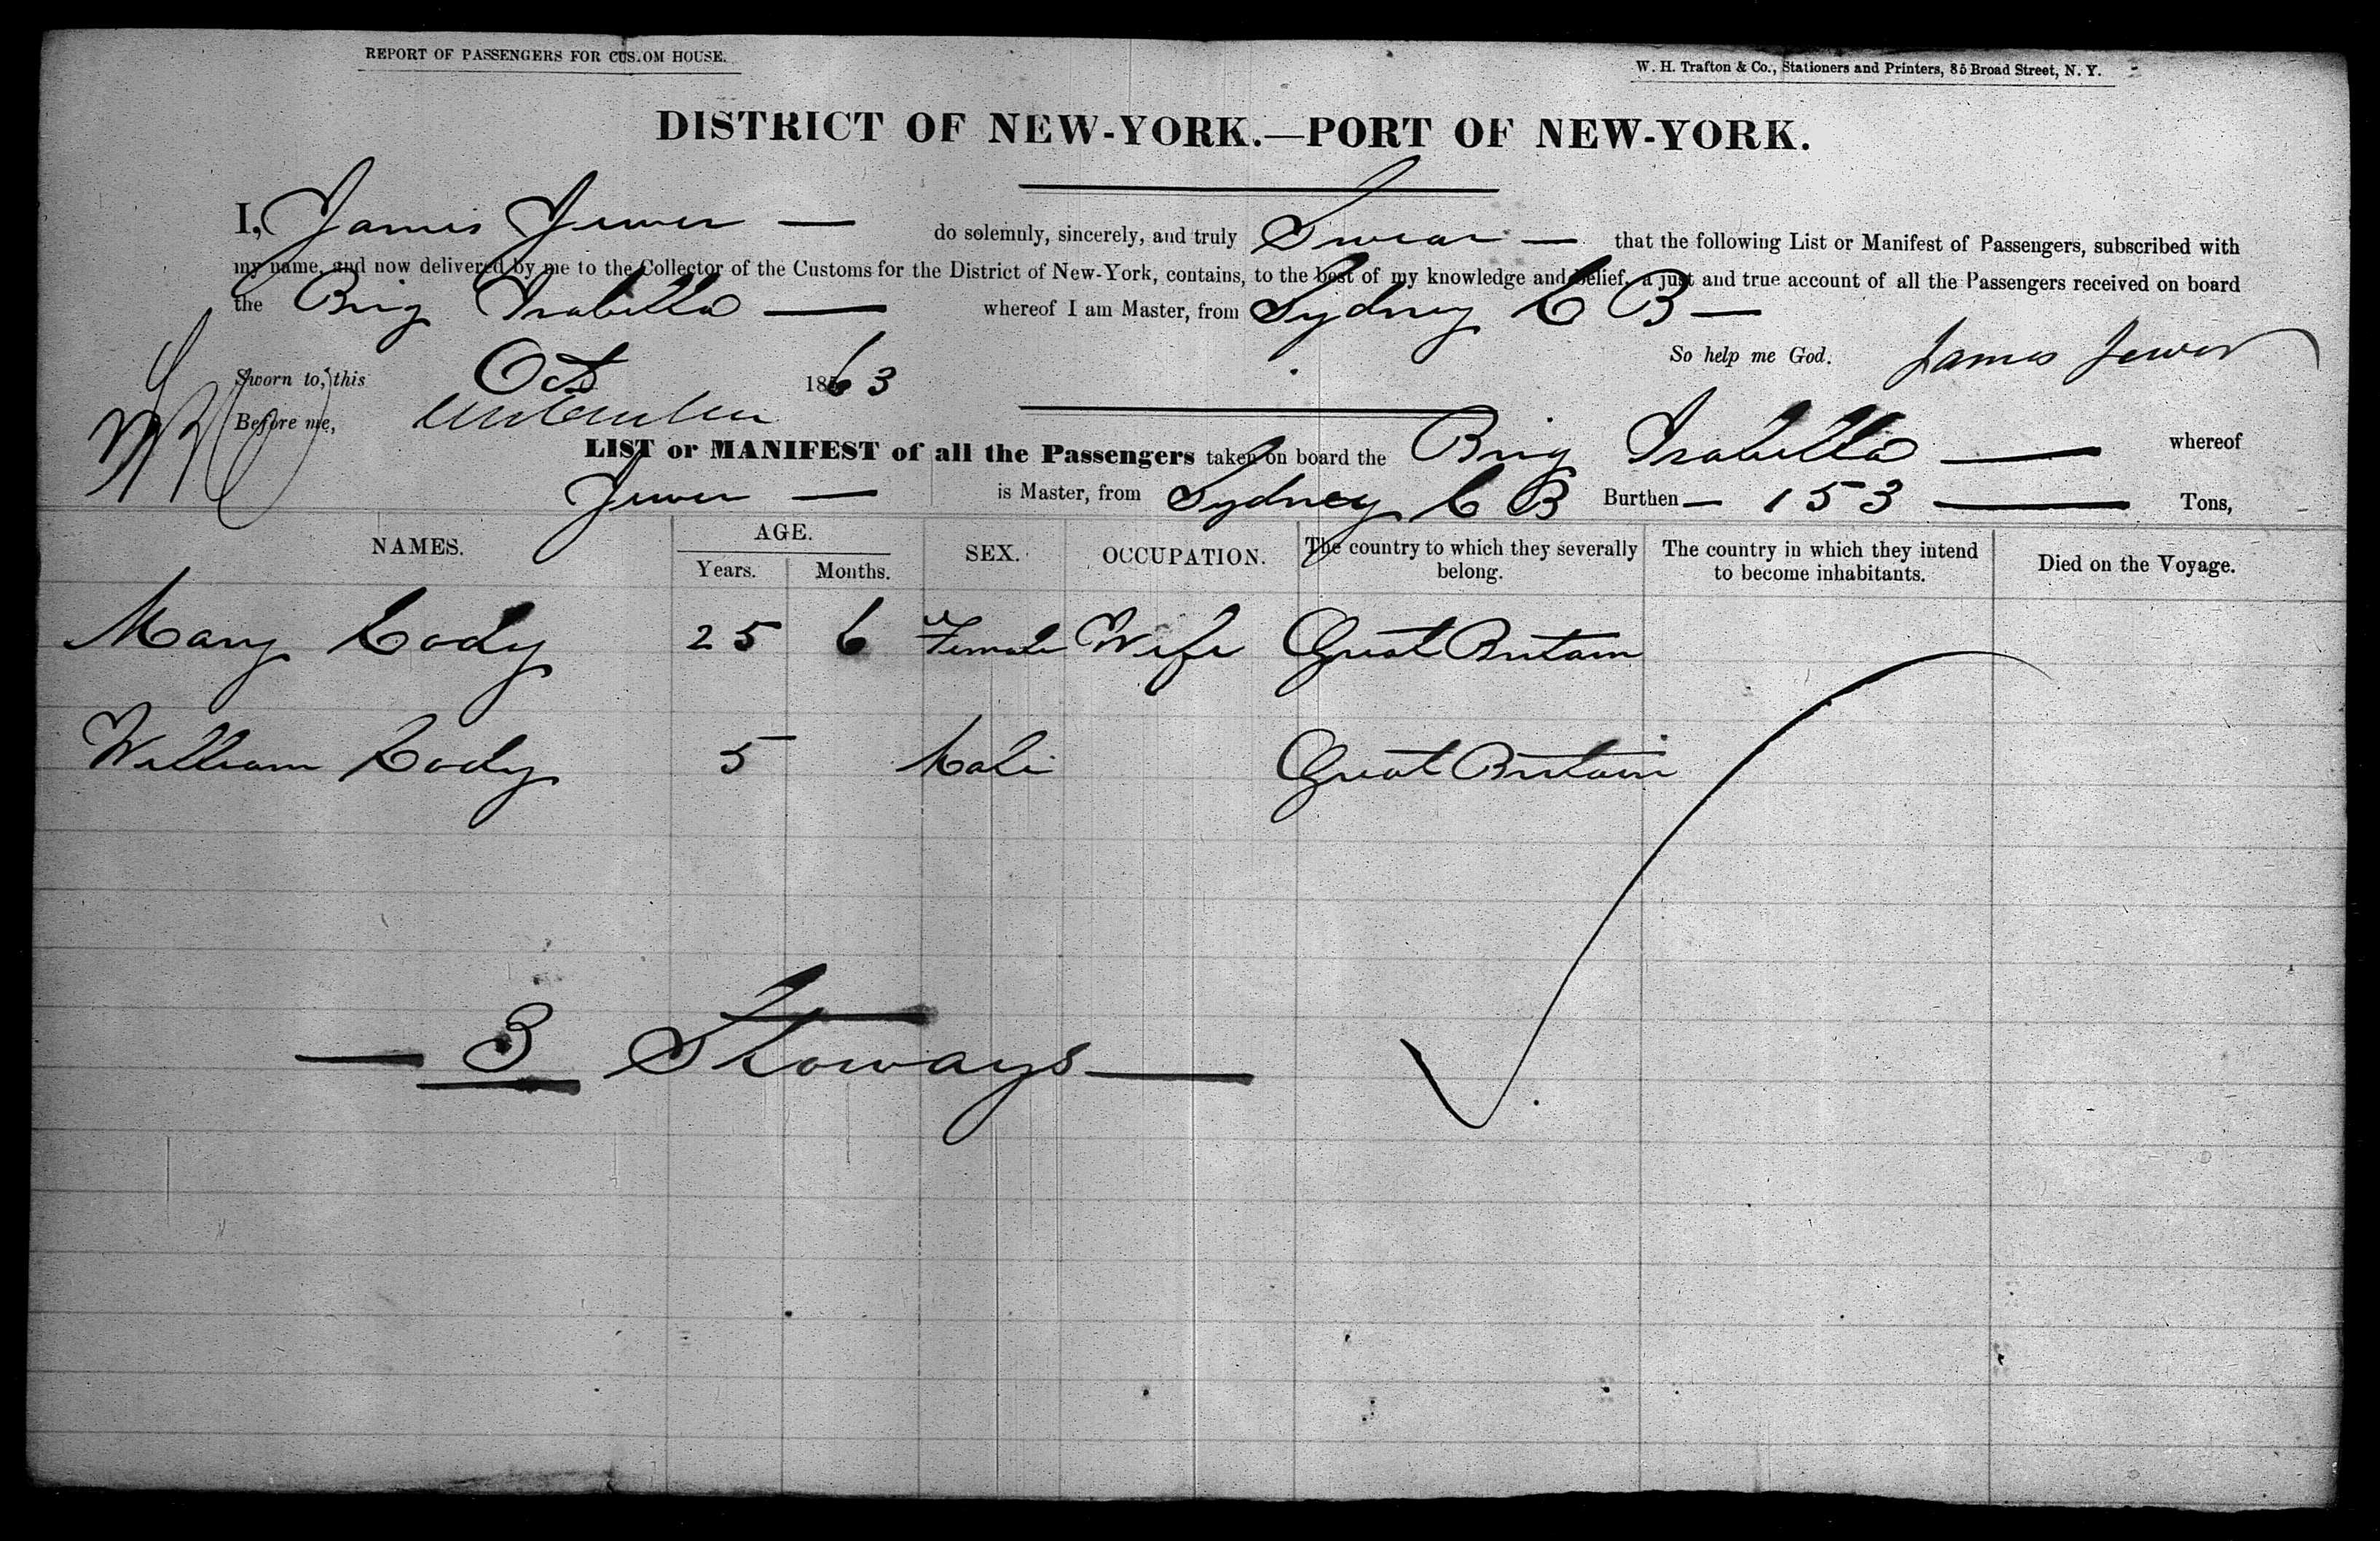 REPORT OF PASSENGERS FOR CUSTOM HOUSE.
W. H. Trafton & Co., Stationers and Printers, 85 Broad Street, N. Y.
DISTRICT OF NEW-YORK.—PORT OF NEW-YORK.
I, James Jewer — do solemnly, sincerely, and truly Swear — that the following List or Manifest of Passengers, subscribed with
my name, and now delivered by me to the Collector of the Customs for the District of New-York, contains, to the best of my knowledge and belief, a just and true account of all the Passengers received on board
the Brig Isabella — whereof I am Master, from Sydney C B —
So help me God. James Jewer
Sworn to, this Oct 1863
Before me,
LIST or MANIFEST of all the Passengers taken on board the Brig Isabella — whereof
Jewer — is Master, from Sydney C B Burthen — 153 — Tons,
NAMES. AGE. Years. Months. SEX. OCCUPATION. The country to which they severally belong. The country in which they intend to become inhabitants. Died on the Voyage.
Mary Cody 25 6 Female Wife Great Britain
William Cody 5 Male Great Britain
— 3 Stoways —